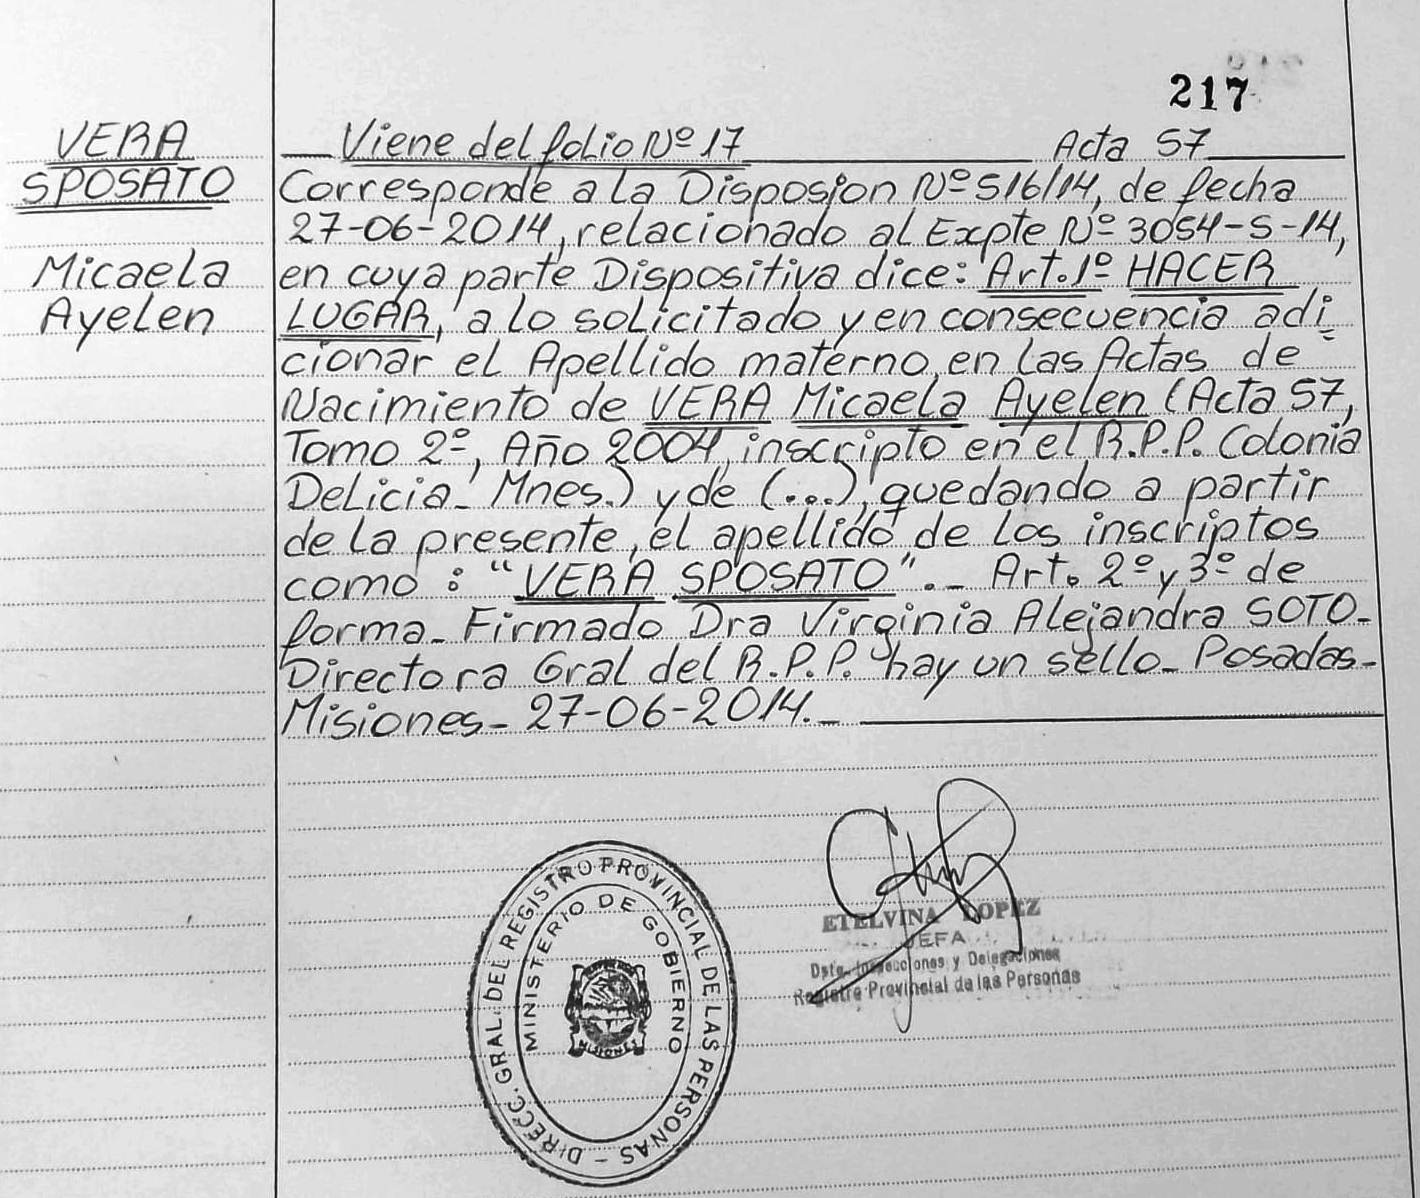 217
VERA
SPOSATO
Micaela
Ayelen
Viene del folio Nº 17 Acta 57
Corresponde a la Disposion Nº 516/14, de fecha
27-06-2014, relacionado al Expte Nº 3054-S-14,
en cuya parte Dispositiva dice: Art. 1º HACER
LUGAR, a lo solicitado y en consecuencia adi
cionar el Apellido materno, en las Actas de
Nacimiento de VERA Micaela Ayelen (Acta 57,
Tomo 2º, Año 2004, inscripto en el R.P.P. Colonia
Delicia- Mnes.) y de (...), quedando a partir
de la presente, el apellido de los inscriptos
como: "VERA SPOSATO".- Art. 2º y 3º de
forma- Firmado Dra Virginia Alejandra SOTO-
Directora Gral del R.P.P. hay un sello- Posadas-
Misiones- 27-06-2014.-
DIRECC. GRAL. DEL REGISTRO PROVINCIAL DE LAS PERSONAS -
MINISTERIO DE GOBIERNO
MISIONES
ETELVINA LOPEZ
JEFA
Dpto. Inspecciones y Delegaciones
Registro Provincial de las Personas